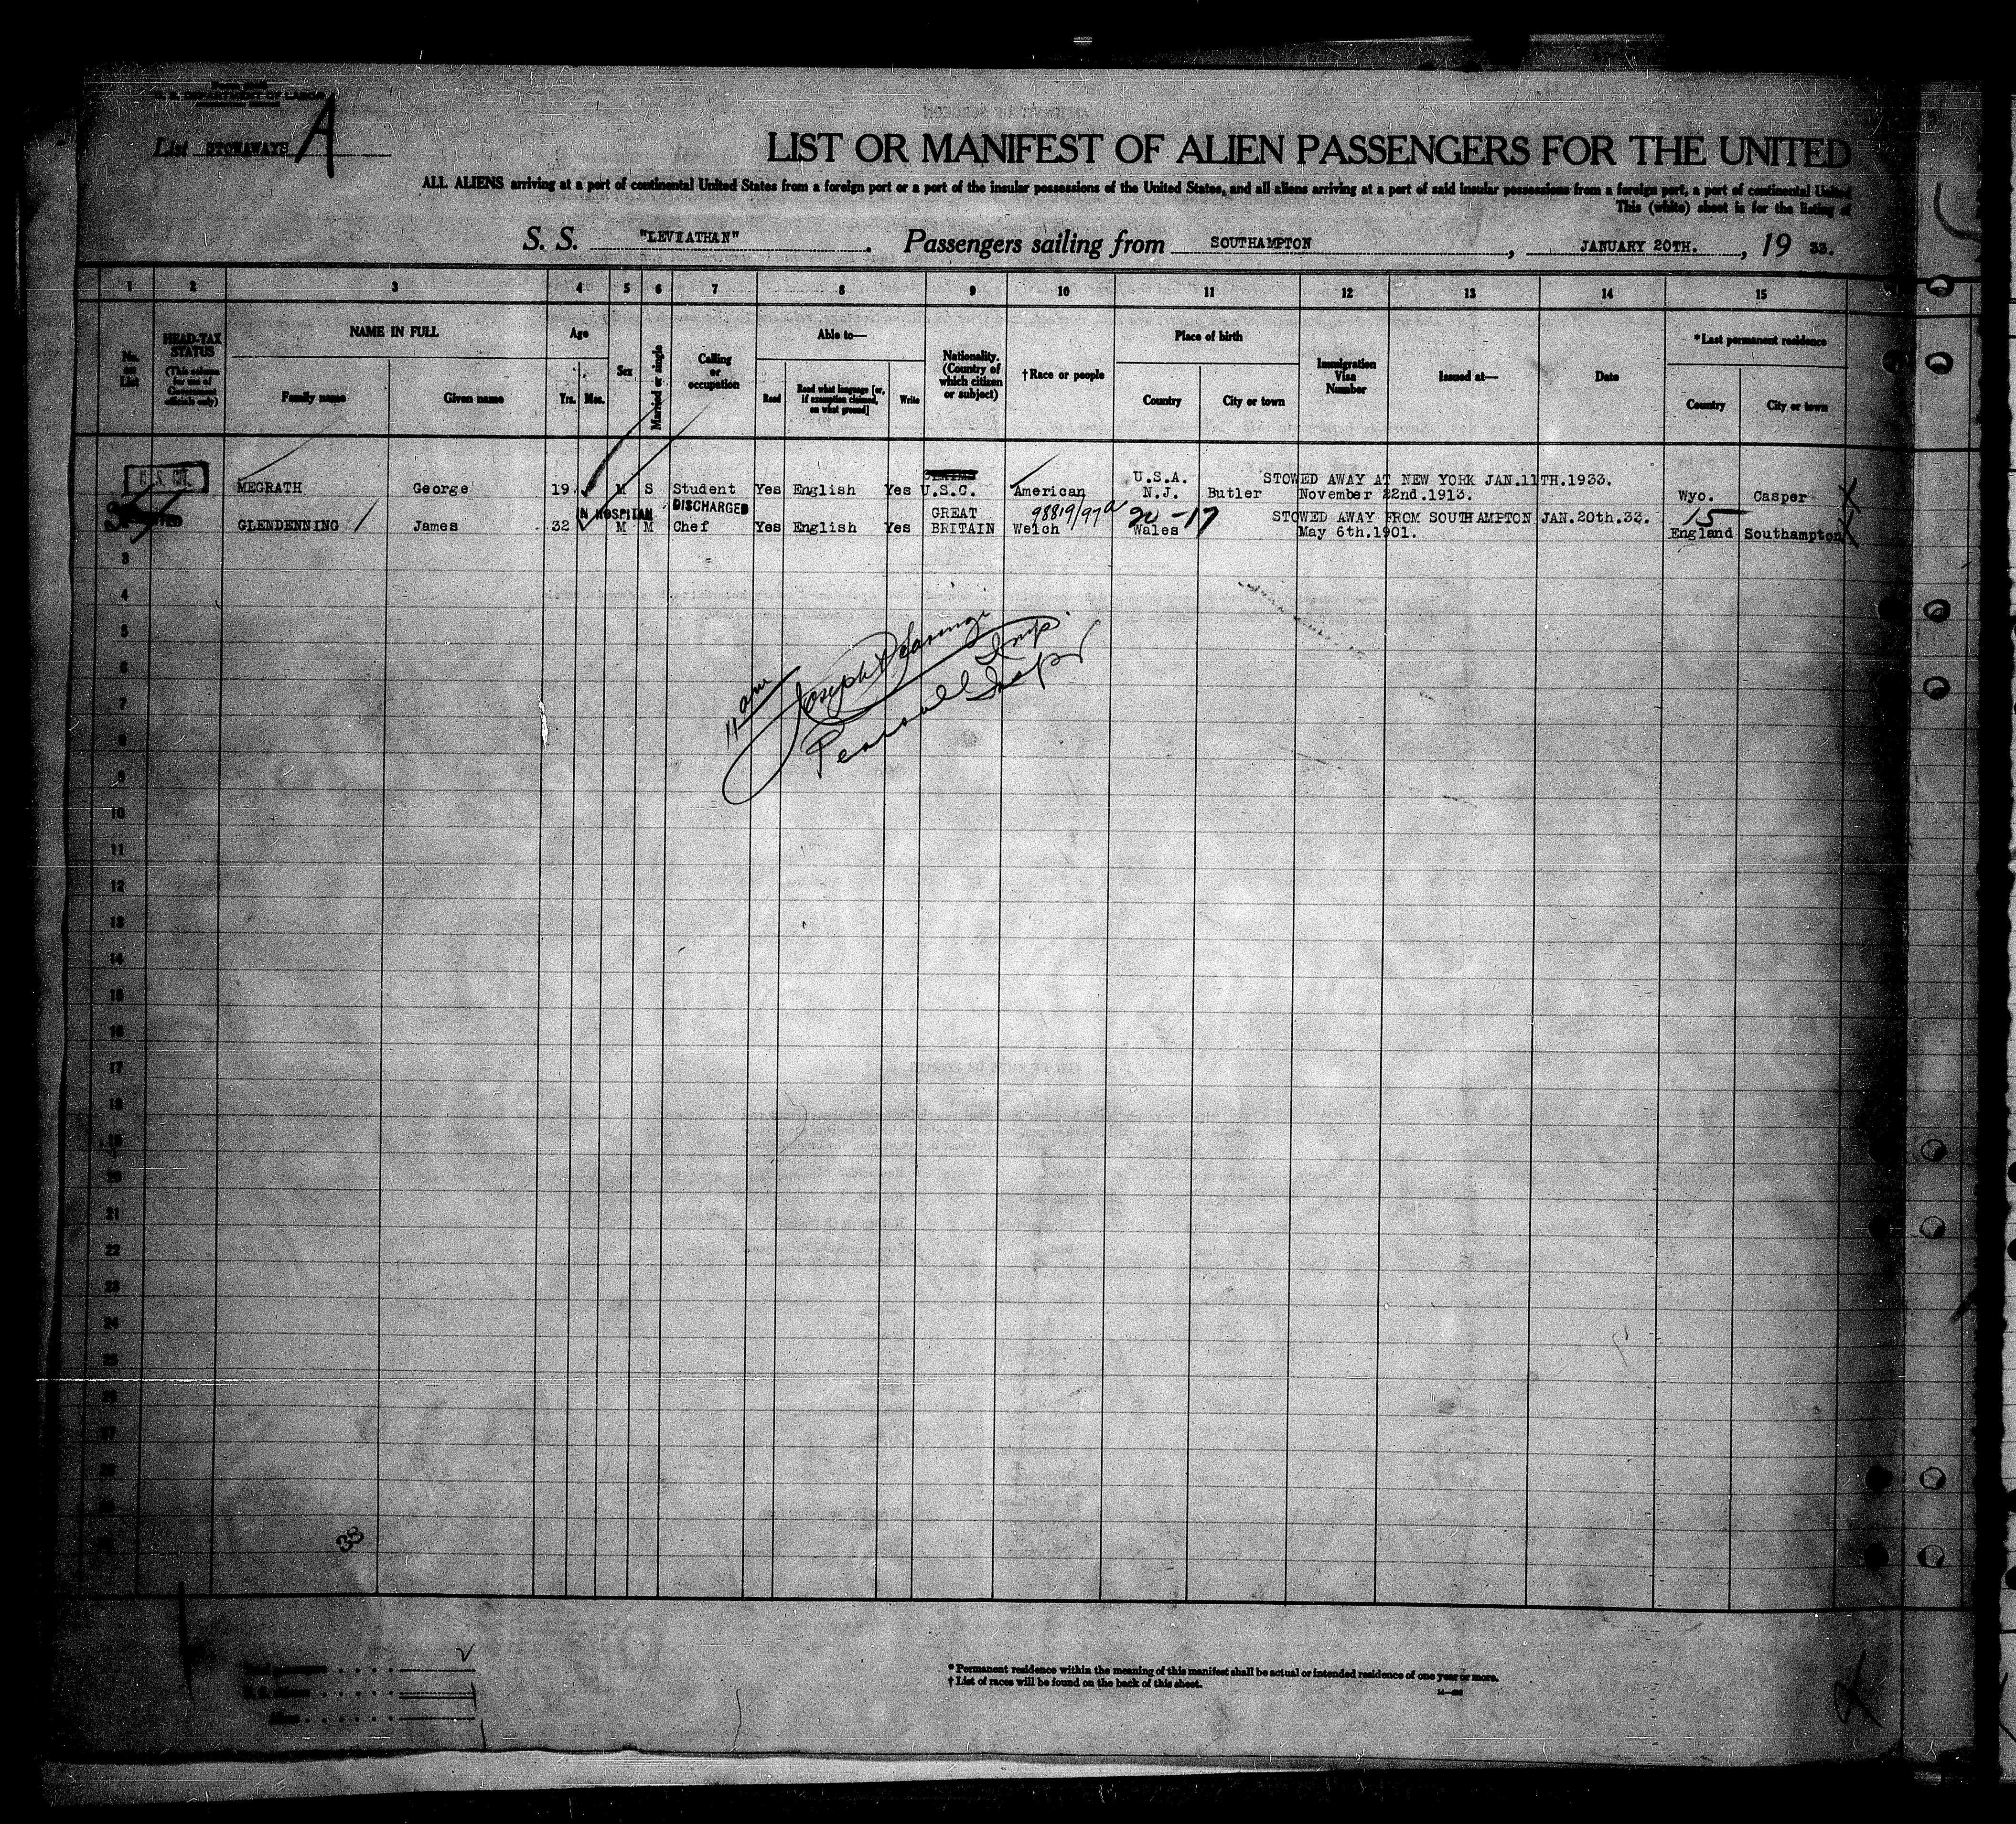 U. S. DEPARTMENT OF LABOR
List STOWAWAYS A
LIST OR MANIFEST OF ALIEN PASSENGERS FOR THE UNITED
ALL ALIENS arriving at a port of continental United States from a foreign port or a port of the insular possessions of the United States, and all aliens arriving at a port of said insular possessions from a foreign port, a port of continental United
This (white) sheet is for the listing of
S. S. "LEVIATHAN". Passengers sailing from SOUTHAMPTON, JANUARY 20TH., 19 33.
1 2 3 4 5 6 7 8 9 10 11 12 13 14 15
No. on List
HEAD-TAX STATUS
(This column for use of Government officials only)
NAME IN FULL
Family name
Given name
Age
Yrs. Mos.
Sex
Married or single
Calling or occupation
Able to—
Read
Read what language [or, if exemption claimed, on what ground]
Write
Nationality. (Country of which citizen or subject)
†Race or people
Place of birth
Country
City or town
Immigration Visa Number
Issued at—
Date
*Last permanent residence
Country
City or town
U.S. CIT. MEGRATH George 19 M S Student Yes English Yes U.S.C. American U.S.A. N.J. Butler STOWED AWAY AT NEW YORK JAN.11TH.1933. November 22nd.1913. Wyo. Casper X
IN HOSPITAL DISCHARGED
GLENDENNING James 32 M M Chef Yes English Yes GREAT BRITAIN Welch 98819/97 Wales 20-17 STOWED AWAY FROM SOUTHAMPTON JAN.20th.33. May 6th.1901. 15 England Southampton X
3
4
5
6
7
8
9
10
11
12
13
14
15
16
17
18
19
20
21
22
23
24
25
26
27
11 am
Joseph
Insp.
38
* Permanent residence within the meaning of this manifest shall be actual or intended residence of one year or more.
† List of races will be found on the back of this sheet.